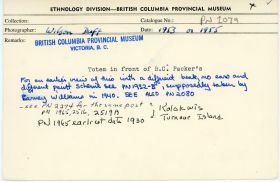 ETHNOLOGY DIVISION—BRITISH COLUMBIA PROVINCIAL MUSEUM
Collection: Catalogue No.: PN 1079
Photographer: Wilson Duff Date: 1953 or 1955
Remarks: BRITISH COLUMBIA PROVINCIAL MUSEUM
VICTORIA, B.C.
Totem in front of B.C. Packer's
For an earlier view of this with a different beak, no ears and
different paint scheme see PN 1952-B, supposedly taken by
Barney Williams in 1940. SEE ALSO PN 2080
- see PN 2274 for the same post
PN 1965, 2516, 2519A
PN 1965 earliest 1930
Kalokwis
Turnour Island